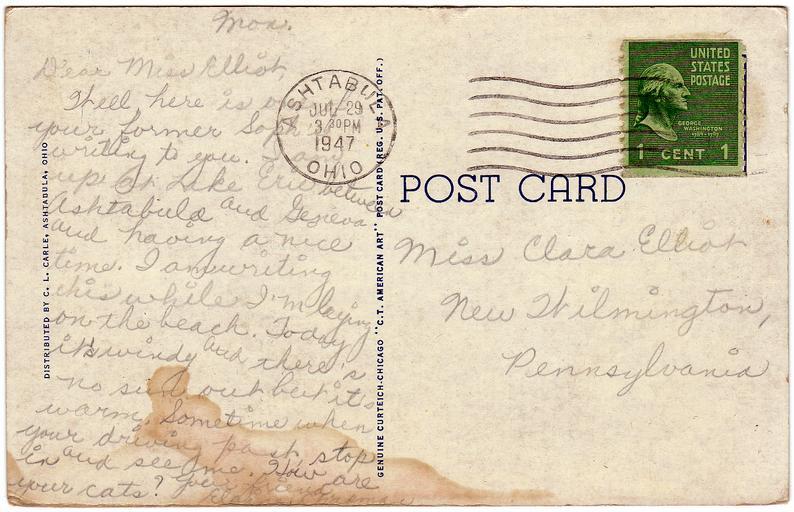 Mon.
Dear Miss Elliot,
Well here is
your former Soph
writing to you. I am
up at Lake Erie between
Ashtabula and Geneva
and having a nice
time. I am writing
this while I'm laying
on the beach. Today
it's windy and there's
no sun out but it's
warm. Sometime when
your driving past stop
in and see me. How are
your cats? Your friend
DISTRIBUTED BY C. L. CARLE, ASHTABULA, OHIO
GENUINE CURTEICH-CHICAGO "C.T. AMERICAN ART" POST CARD (REG. U.S. PAT. OFF.)
ASHTABULA
JUL 29
3 30 PM
1947
OHIO
UNITED
STATES
POSTAGE
GEORGE
WASHINGTON
1789-1797
1 CENT 1
POST CARD
Miss Clara Elliot
New Wilmington,
Pennsylvania